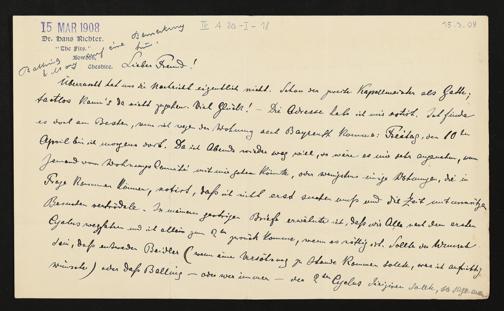 15 MAR 1908
IV A 20-I-18
15.3.08
Dr. Hans Richter.
"The Firs,"
Bowdon,
Cheshire.
Balling
eine Bemerkung
Lieber Freund!
Überrascht hat uns die Nachricht eigentlich nicht. Schon der zweite Kapellmeister als Gatte;
taktlos kann's da nicht zugehen. Viel Glück! – Die Adresse hab ich mir notirt. Ich finde
es dort am Besten, wenn ich wegen der Wohnung nach Bayreuth komme: Freitag, den 10ten
April bin ich morgens dort. Da ich Abends wieder weg will, so wäre es mir sehr angenehm, wenn
Jemand vom Wohnungs Comité mit mir gehen könnte, oder wenigstens einige Wohnungen, die in
Frage kommen können, notirt, daß ich nicht erst suchen muß und die Zeit mit unnützen
Besuchen vertrödele. In meinem gestrigen Briefe erwähnte ich, daß wir Alle nach dem ersten
Cyclus wegfahren und ich allein zum 2ten zurück komme, wenn es nöthig ist. Sollte der Wunsch
sein, daß entweder Beidler (wenn eine Versöhnung zu Stande kommen sollte, was ich aufrichtig
wünsche) oder daß Balling – oder wer immer – den 2ten Cyclus dirigiren sollte, so